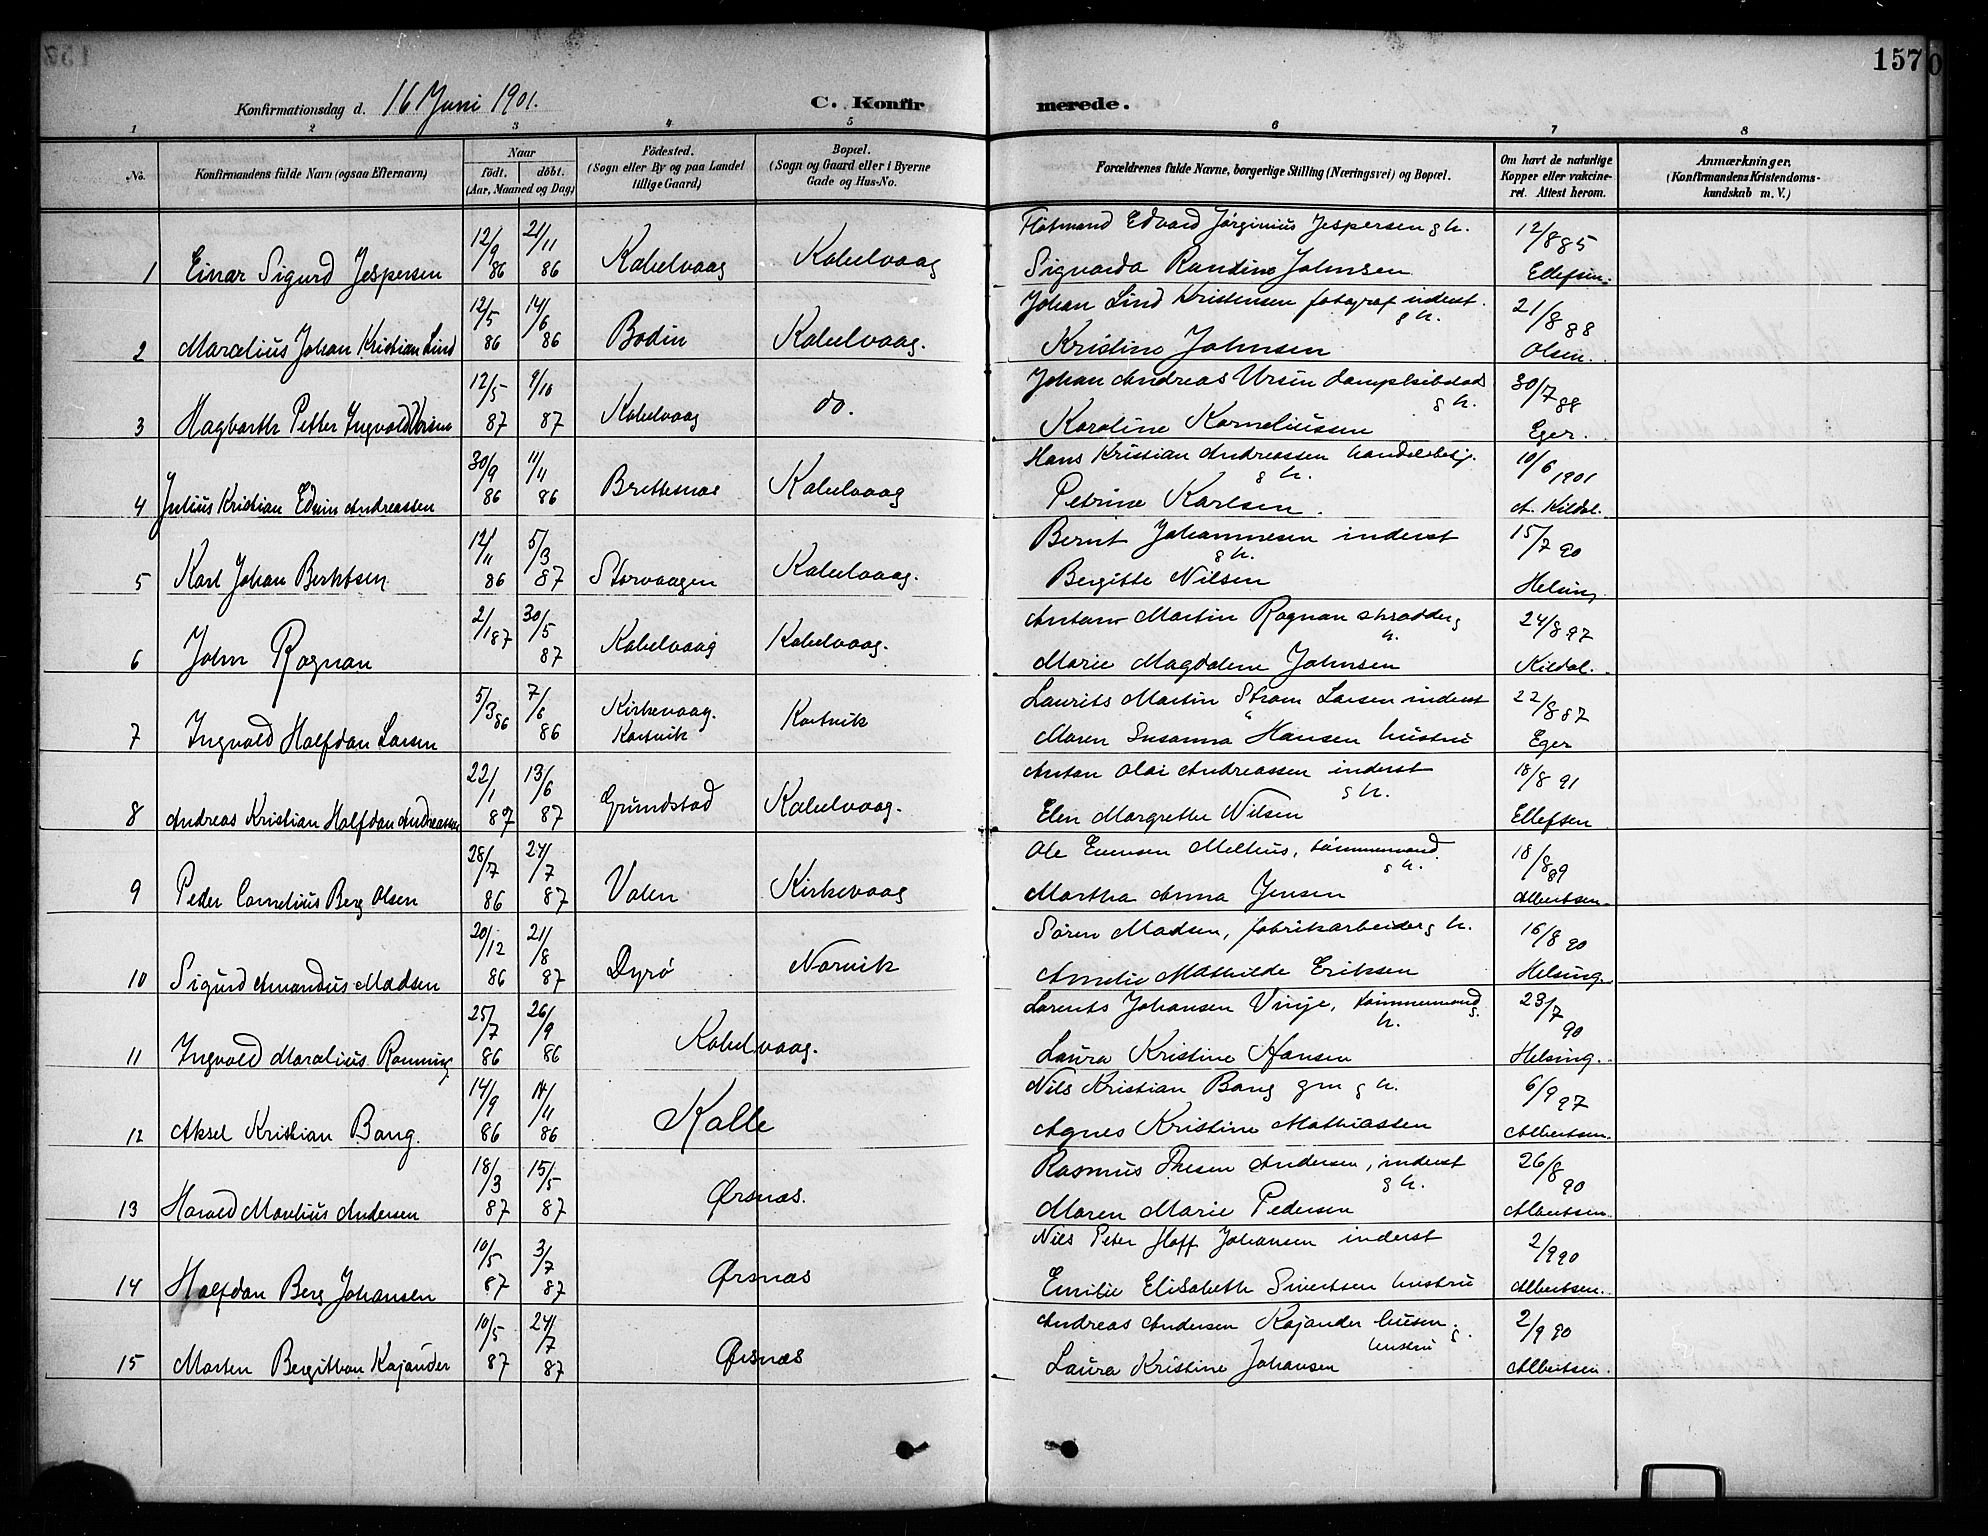 157
Konfirmationsdag d. 16 Juni 1901.
C. Konfirmerede.
1 2 3 4 5 6 7 8
No.
Konfirmandens fulde Navn (ogsaa Efternavn)
Naar
födt. döbt.
(Aar, Maaned og Dag)
Födested.
(Sogn eller By og paa Landet
tillige Gaard)
Bopæl.
(Sogn og Gaard eller i Byerne
Gade og Hus-No.
Forældrenes fulde Navne, borgerlige Stilling (Næringsvei) og Bopæl.
Om havt de naturlige
Kopper eller vakcine-
ret. Attest herom.
Anmærkninger,
(Konfirmandens Kristendoms-
kundskab m. V.)
1 Einar Sigurd Jespersen 12/9 86 21/11 86 Kabelvaag Kabelvaag
Flötmand Edvard Jörginius Jespersen g h.
Signarda Randine Johnsen
12/8 85
Ellefsen.
2 Marcelius Johan Kristian Lind 12/5 86 14/6 86 Bodin Kabelvaag.
Johan Lind Kristensen fotograf inderst.
g h.
Kristine Johnsen
21/8 88
Olsen.
3 Hagbarth Petter Ingvald Ursin 12/5 87 9/10 87 Kabelvaag do.
Johan Andreas Ursin
g h.
Karoline Korneliussen
30/7 88
Eger.
4 Julius Kristian Edvin Andreassen 30/9 86 11/11 86 Brettesnæs Kabelvaag
Hans Kristian Andreassen handelsbetj.
g h.
Petrine Karlsen.
10/6 1901
A. Kildal.
5 Karl Johan Berntsen 12/11 86 5/3 87 Storvaagen Kabelvaag.
Bernt Johannesen inderst
g h.
Bergitte Nilsen
15/7 90
Helsing
6 John Rognan 2/1 87 30/5 87 Kabelvaag Kabelvaag.
Anton Martin Rognan skrædder g
h.
Marie Magdalene Johnsen
24/8 97
Kildal.
7 Ingvald Halfdan Larsen 5/3 86 7/6 86 Kirkevaag. Kartvik
Kartvik
Laurits Martin Strøm Larsen inderst
Maren Susanna Hansen hustru
22/8 87
Eger
8 Andreas Kristian Halfdan Andreassen 22/1 87 13/6 87 Grundstad Kabelvaag.
Anton Olai Andreassen inderst
g h.
Elen Margrethe Nilsen
18/8 91
Ellefsen
9 Peder Cornelius Berg Olsen 28/7 86 24/7 87 Valen Kirkevaag
Ole Evensen Melhus, tömmermand.
g h.
Martha Anna Jensen
18/8 89
Albertsen.
10 Sigurd Amandus Madsen 20/12 86 21/8 87 Dyrö Narvik
Sören Madsen, fabrikarbeider g h.
Amelie Mathilde Eriksen
16/8 90
Helsing.
11 Ingvald Marcelius Rønning 25/7 86 26/9 86 Kabelvaag.
Lorents Johansen Vinje, tömmermand g.
h.
Laura Kristine Hansen
23/7 90
Helsing.
12 Aksel Kristian Bang. 14/9 86 14/11 86 Kalle
Nils Kristian Bang gm g h.
Agnes Kristine Mathiassen
6/9 97
Albertsen.
13 Harald Marelius Andersen 18/3 87 15/5 87 Ørsnæs.
Rasmus Thesen Andersen, inderst
g h.
Maren Marie Pedersen
26/8 90
Albertsen.
14 Halfdan Berg Johansen 10/5 87 3/7 87 Ørsnæs
Nils Peter Hoff Johansen inderst
Emilie Elisabeth Sivertsen hustru
2/9 90
Albertsen.
15 Morten Bergithon Kajander 10/5 87 24/7 87 Ørsnæs
Andreas Andersen Kajander husm. g.
hustru
Laura Kristine Johansen
2/9 90
Albertsen.